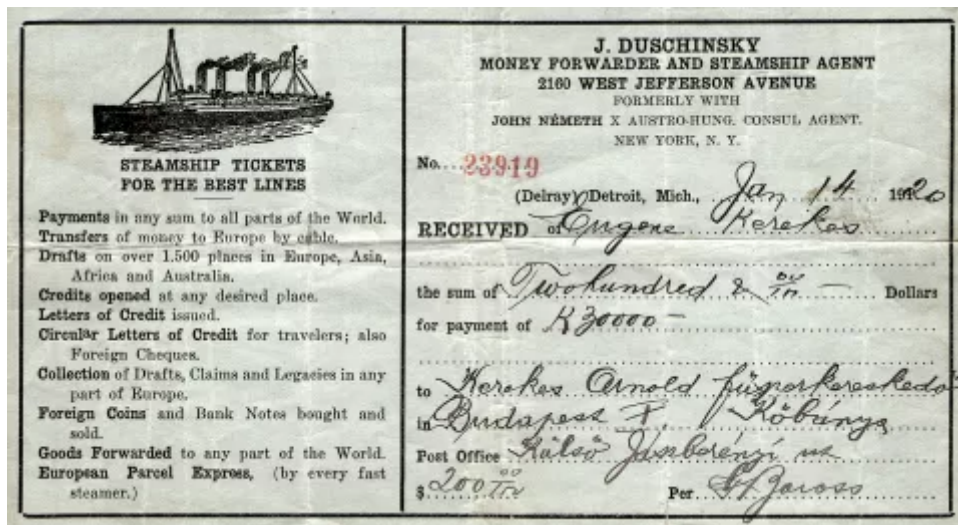 STEAMSHIP TICKETS
FOR THE BEST LINES
Payments in any sum to all parts of the World.
Transfers of money to Europe by cable.
Drafts on over 1.500 places in Europe, Asia,
Africa and Australia.
Credits opened at any desired place.
Letters of Credit issued.
Circular Letters of Credit for travelers; also
Foreign Cheques.
Collection of Drafts, Claims and Legacies in any
part of Europe.
Foreign Coins and Bank Notes bought and
sold.
Goods Forwarded to any part of the World.
European Parcel Express, (by every fast
steamer.)
J. DUSCHINSKY
MONEY FORWARDER AND STEAMSHIP AGENT
2160 WEST JEFFERSON AVENUE
FORMERLY WITH
JOHN NÉMETH X AUSTRO-HUNG. CONSUL AGENT.
NEW YORK, N. Y.
No. 23919
(Delray) Detroit, Mich., Jan 14 1920
RECEIVED of Eugene Kerekes
the sum of Twohundred & Dollars
for payment of K 30000 —
to Kerekes Arnold fűszerkereskedő
in Budapest Kőbánya
Post Office Külső Jászberényi ut
$ 200 Per